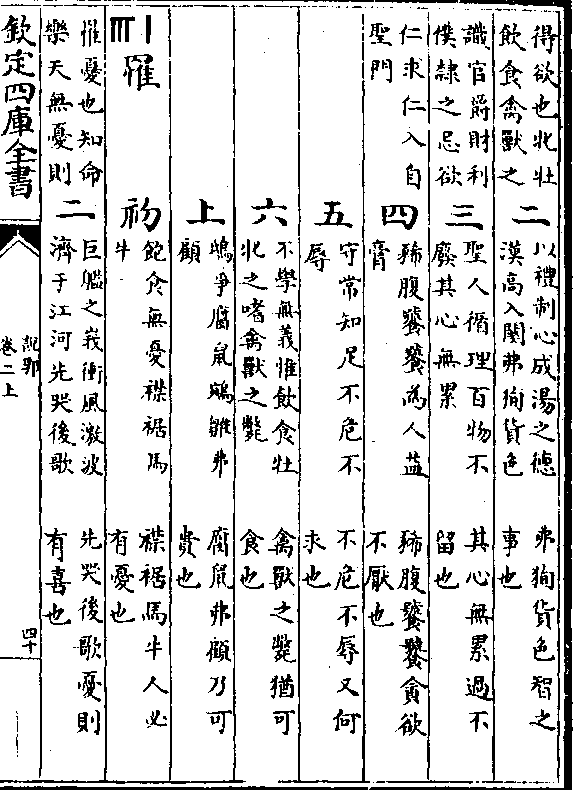 得欲也牝牡
飲食禽獸之
二
以禮制心成湯之德
漢高入關弗狥貨色
弗狥貨色智之
事也
識官爵財利
僕隸之忌欲
三
聖人循理百物不
廢其心無累
其心無累過不
留也
仁求仁入自
聖門
四
豨腹饕饕為人益
膏
豨腹饕饕貪欲
不厭也
五
守常知足不危不
辱
不危不辱又何
求也
六
不學無義惟飲食牡
牝之嗜禽獸之斃
禽獸之斃猶可
食也
上
鴟爭腐鼠鵷雛弗
顧
腐鼠弗顧乃可
貴也
罹
初
飽食無憂襟裾馬
牛
襟裾馬牛人必
有憂也
罹憂也知命
樂天無憂則
二
巨艦之峩衝風激波
濟于江河先哭後歌
先哭後歌憂則
有喜也
欽定四庫全書
說郛
卷二上
四十